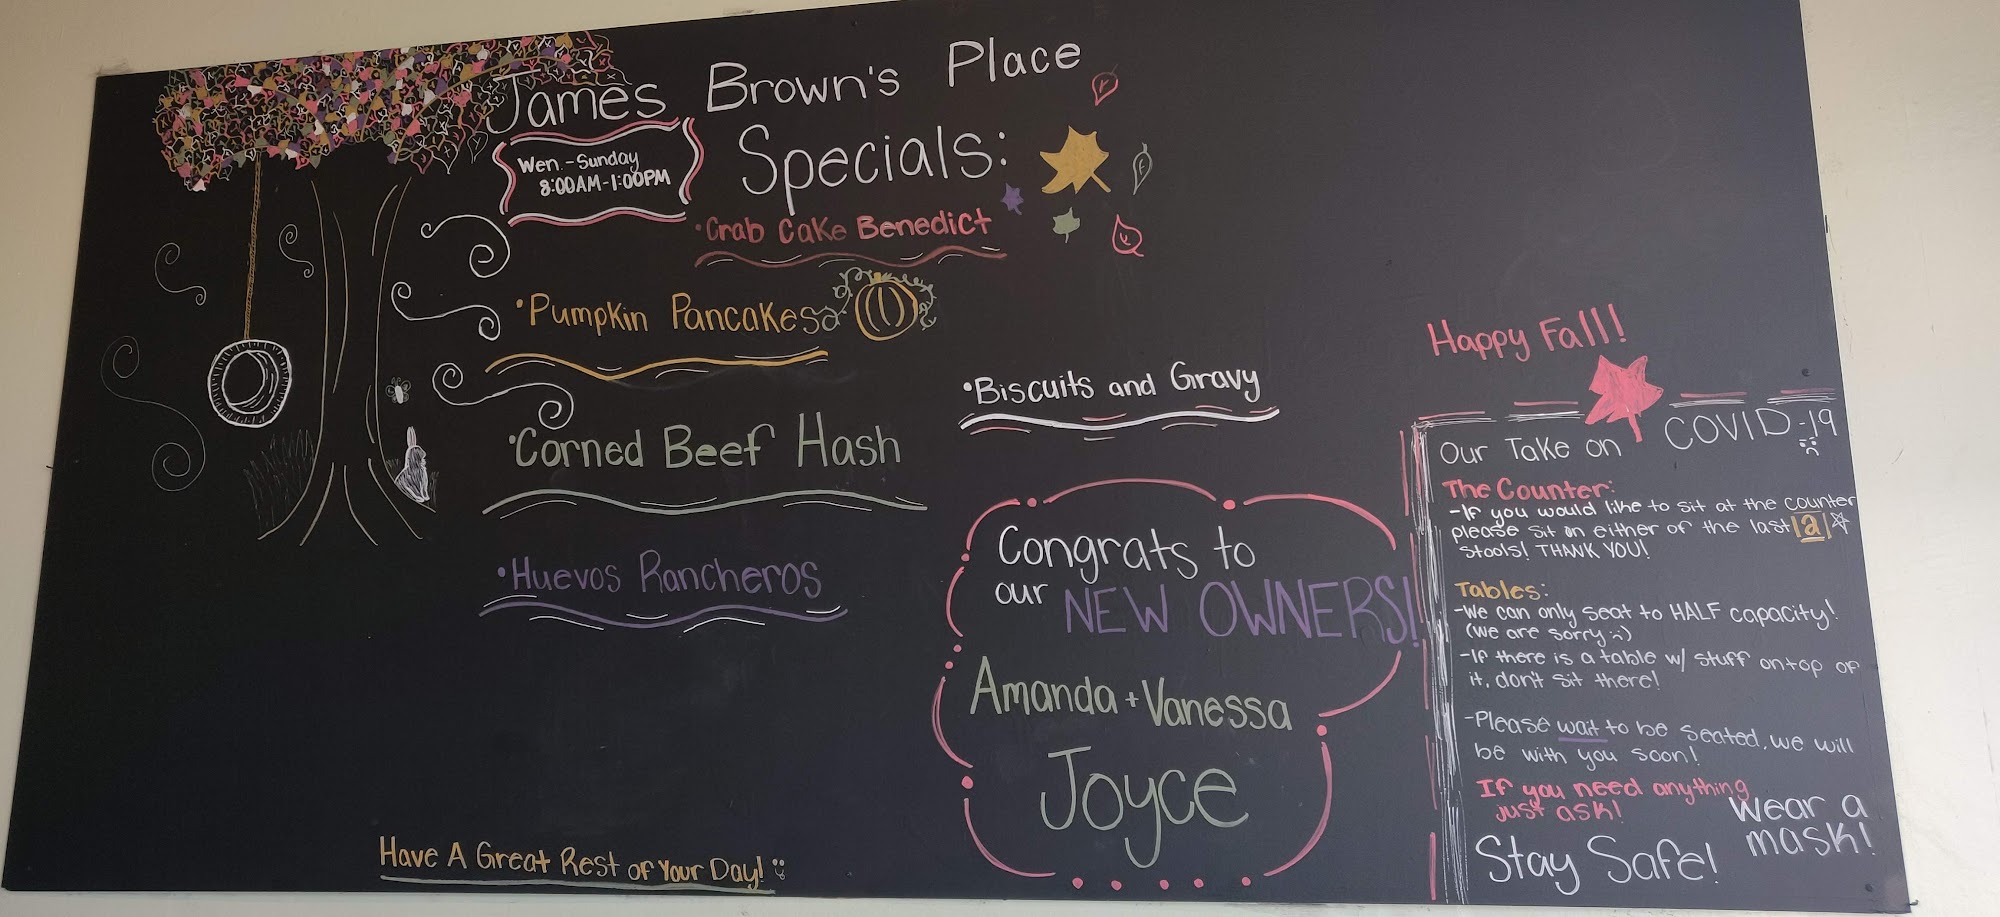 James Brown's Place
Specials:
Wen.-Sunday
8:00AM-1:00PM
•Crab Cake Benedict
•Pumpkin Pancakes
•Corned Beef Hash
•Huevos Rancheros
•Biscuits and Gravy
Congrats to
our NEW OWNERS!
Amanda + Vanessa
Joyce
Have A Great Rest of Your Day!
Happy Fall!
Our Take on COVID-19
The Counter:
-If you would like to sit at the counter
please sit on either of the last
stools! THANK YOU!
Tables:
-We can only seat to HALF capacity!
(we are sorry :()
-If there is a table w/ stuff on top of
it, don't sit there!
-Please wait to be seated, we will
be with you soon!
If you need anything
just ask!
Wear a
mask!
Stay Safe!